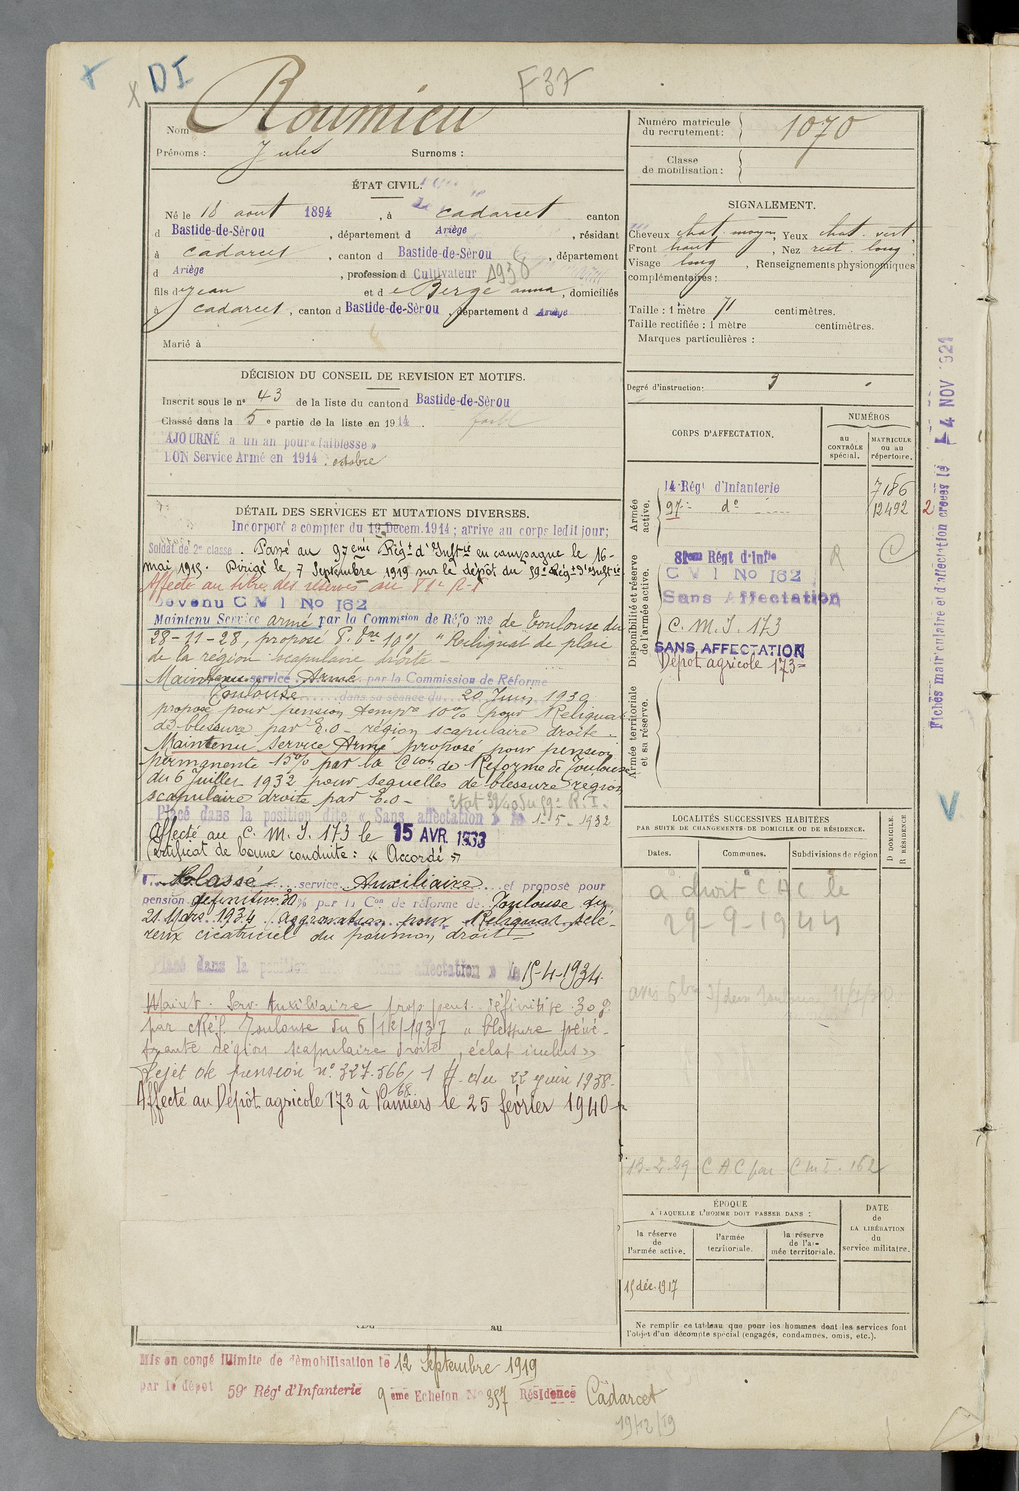 DI
F 37
Nom Roumieu
Prénoms : Jules Surnoms :
Numéro matricule du recrutement : 1070
Classe de mobilisation :
ÉTAT CIVIL.
Né le 18 aout 1894, à Cadarcet canton
d Bastide-de-Sérou, département d Ariège, résidant
à Cadarcet, canton d Bastide-de-Sérou, département
d Ariège, profession d Cultivateur 1938
fils d Jean et d e Bergé anna, domiciliés
à Cadarcet, canton d Bastide-de-Sérou, département d Ariège
Marié à
SIGNALEMENT.
Cheveux chat. moyen, Yeux chat. vert
Front haut, Nez rect. long
Visage long, Renseignements physionomiques
complémentaires :
Taille : 1 mètre 71 centimètres.
Taille rectifiée : 1 mètre centimètres.
Marques particulières :
Degré d'instruction : 3
DÉCISION DU CONSEIL DE REVISION ET MOTIFS.
Inscrit sous le n° 43 de la liste du canton d Bastide-de-Sérou
Classé dans la 5 e partie de la liste en 1914.
AJOURNÉ à un an pour « faiblesse »
BON Service Armé en 1914. octobre
DÉTAIL DES SERVICES ET MUTATIONS DIVERSES.
Incorporé à compter du Décem. 1914 ; arrive au corps ledit jour ;
Soldat de 2e classe. Passé au 97ème Régt d'Inftie en campagne le 16-
mai 1915. Dirigé le 7 Septembre 1919 sur le dépôt du 59e Régt d'Inftie
Affecté au titre des réserves au 81e R.I
Devenu C M I No 162
Maintenu Service armé par la Commsion de Réforme de Toulouse du
28-11-28, proposé P. Tre 10% "Reliquat de plaie
de la région scapulaire droite –
Maintenu service Armé par la Commission de Réforme
Toulouse dans sa séance du 20 Juin 1930
proposé pour pension tempre 10% pour Reliquat
de blessure par E.O – région scapulaire droite.
Maintenu Service Armé proposé pour pension
permanente 15% par la Cion de Réforme de Toulouse
du 6 Juillet 1932 pour sequelles de blessure région
scapulaire droite par E.O –
Etat 39/40 du 59e R.I.
Placé dans la position dite « Sans affectation » le 1-5-1932
Affecté au C. M. I. 173 le 15 AVR. 1933
Certificat de bonne conduite : « Accordé »
Classé service Auxiliaire et proposé pour
pension définitive 30% par la Con de réforme de Toulouse du
21 Mars 1934. Aggravation pour Reliquat sclé-
reux cicatriciel du poumon droit –
Placé dans la position dite « Sans affectation » le 15-4-1934.
Maint. Serv. Auxiliaire prop. pens. définitive 30%
par cRéf. Toulouse du 6/12/1937 « blessure péné-
trante région scapulaire droite, éclat inclus »
Rejet de pension n° 327.566/1 ff. du 22 juin 1938.
Affecté au Dépôt agricole 173 à Pamiers le 25 février 1940
CORPS D'AFFECTATION.
NUMÉROS
au CONTRÔLE spécial.
MATRICULE ou au répertoire.
Armée active.
14 Régt d'Infanterie 7186
97e do 12492
2
Disponibilité et réserve de l'armée active.
81eme Régt d'Infie R
C M I No 162
Sans Affectation
C. M. I. 173
SANS AFFECTATION
Dépot agricole 173
Armée territoriale et sa réserve.
LOCALITÉS SUCCESSIVES HABITÉES
PAR SUITE DE CHANGEMENTS DE DOMICILE OU DE RÉSIDENCE.
Dates. Communes. Subdivisions de région
D DOMICILE.
R RÉSIDENCE
a droit C A C le
29-9-1944
13-2-29 C A C par C m I. 162
ÉPOQUE
A LAQUELLE L'HOMME DOIT PASSER DANS :
la réserve de l'armée active.
l'armée territoriale.
la réserve de l'armée territoriale.
DATE de LA LIBÉRATION du service militaire.
15 déc. 1917
Ne remplir ce tableau que pour les hommes dont les services font
l'objet d'un décompte spécial (engagés, condamnés, omis, etc.).
Du au
Mis en congé illimité de démobilisation le 12 Septembre 1919
par le dépôt 59e Régt d'Infanterie 9ème Echelon No 357 Résidence Cadarcet
Fiches matriculaire et d'affectation créées le 4 NOV 1921